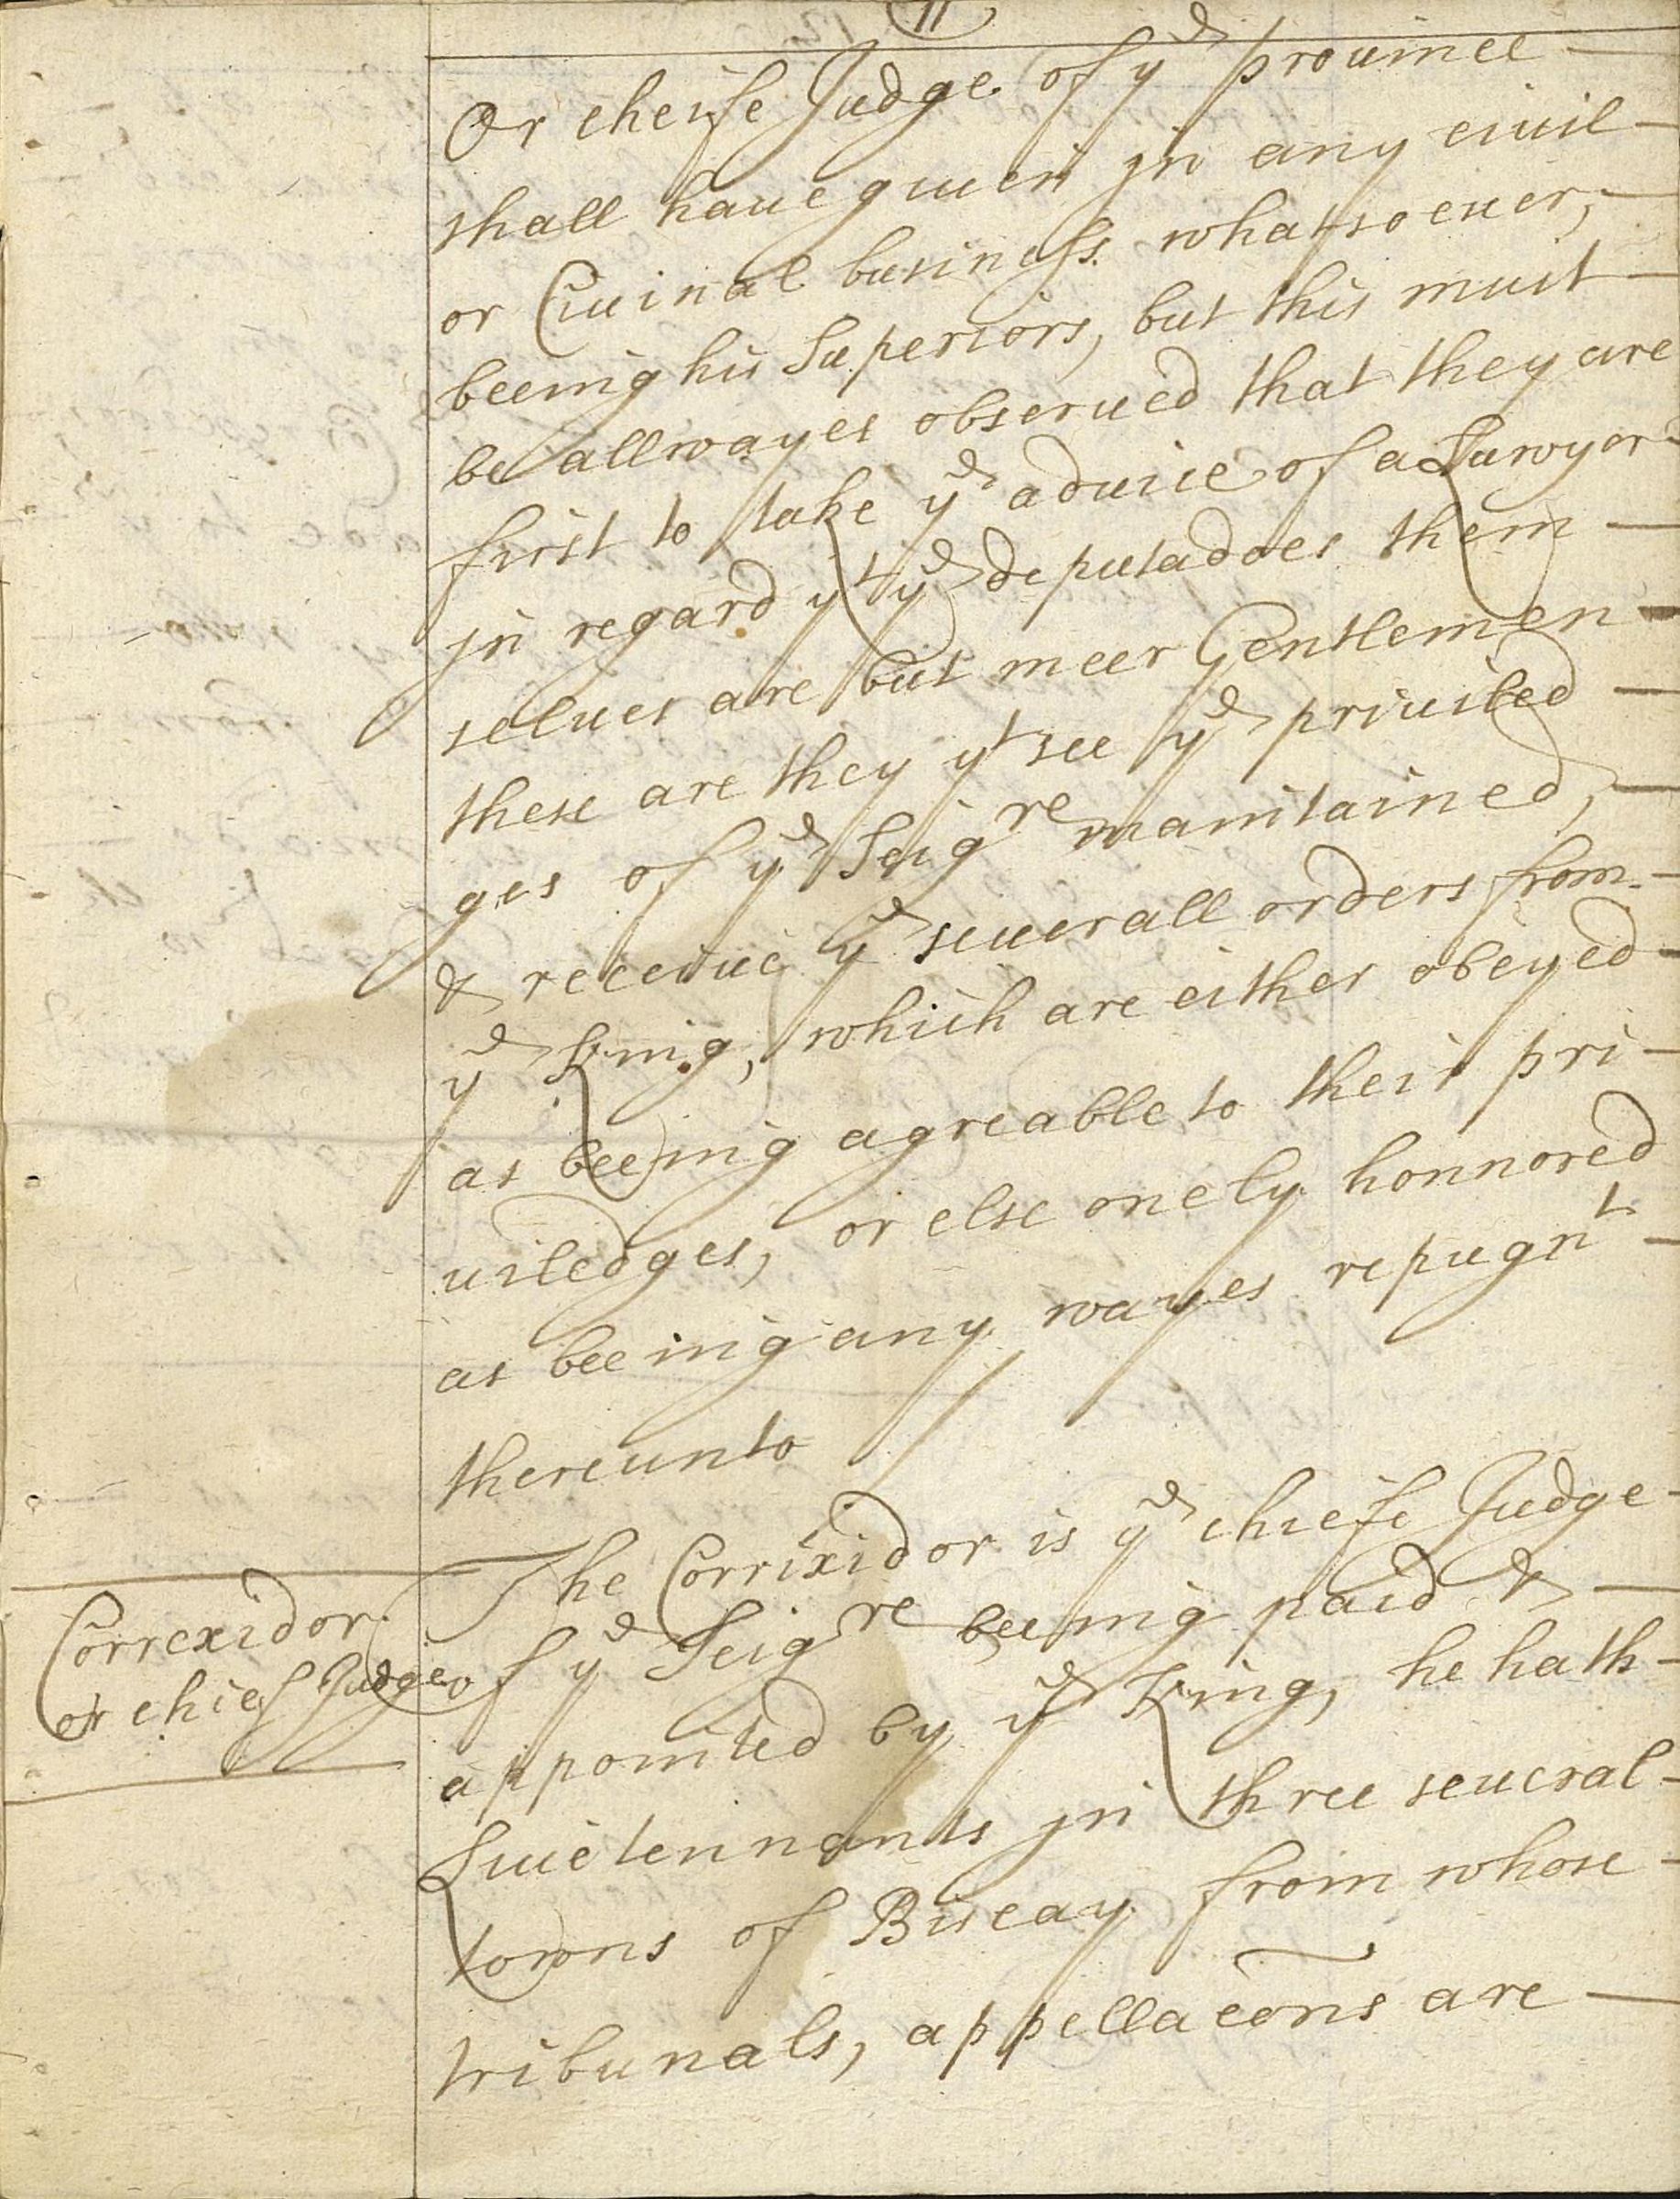 11
Or cheife Judge of yᵉ prouince —
shall haue giuen jn any ciuil —
or Ciuinal business whatsoeuer, —
beeing his Superiors, but this must —
be allwayes obserued that they are
first to take yᵉ aduice of a Lawyor
jn regard yᵗ yᵉ deputadoes them —
selues are but meer Gentlemen —
these are they yᵗ see yᵉ priuiled —
ges of yᵉ Seigʳᵉ maintained, —
& receiue yᵉ seuerall orders from —
yᵉ King, which are either obeyed —
as beeing agreable to their pri —
uiledges, or else onely honnored
as beeing any wayes repugnᵗ —
thereunto
The Corrixidor is yᵉ chiefe Judge —
Correxidor
or chief Judge
of yᵉ Seigʳᵉ beeing paid & —
appointed by yᵉ King, he hath —
Luietennants jn three seueral —
towns of Biscay from whose —
tribunals, appellacōns are —